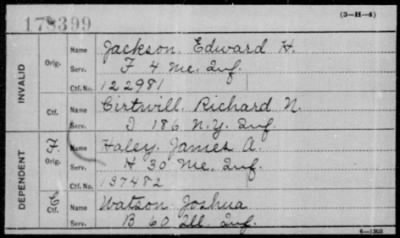 178399
(3-H-4)
INVALID
Orig.
Name Jackson, Edward H.
Serv. F 4 Me. Inf.
Ctf. No. 122981
Ctf.
Name Cirtwill, Richard N.
Serv. I 186 N.Y. Inf.
DEPENDENT
F.
Orig.
Name Haley, James A.
Serv. H 30 Me. Inf.
Ctf. No. 137482
Ctf.
Name Watson Joshua
Serv. B 60 Ill Inf.